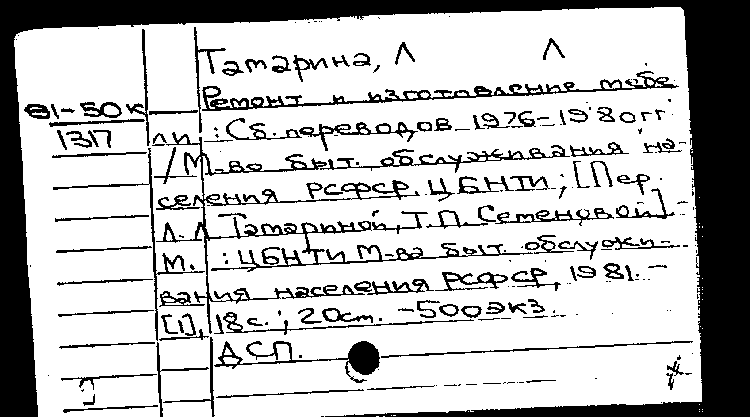 Татарина, Л Л
81-50к Ремонт и изготовление мебе
1317 ли : Сб. переводов 1976-1980гг
/ М-во быт. обслуживания на-
селения РСФСР. ЦБНТИ; [Пер.
Л. Л Татариной, Т.П. Семеновой]. -
М. : ЦБНТИ М-ва быт. обслужи-
вания населения РСФСР, 1981. -
[1], 18с.; 20см. -500экз.
ДСП.